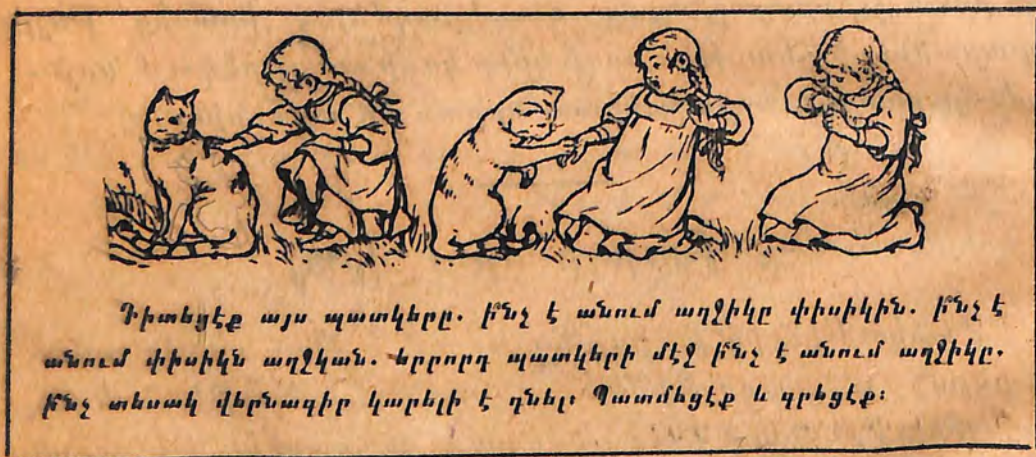 Դիտեցէք այս պատկերը. ի՞նչ է անում աղջիկը փիսիկին. ի՞նչ է
անում փիսիկն աղջկան. երրորդ պատկերի մէջ ի՞նչ է անում աղջիկը.
ի՞նչ տեսակ վերնագիր կարելի է դնել։ Պատմեցէք և գրեցէք։